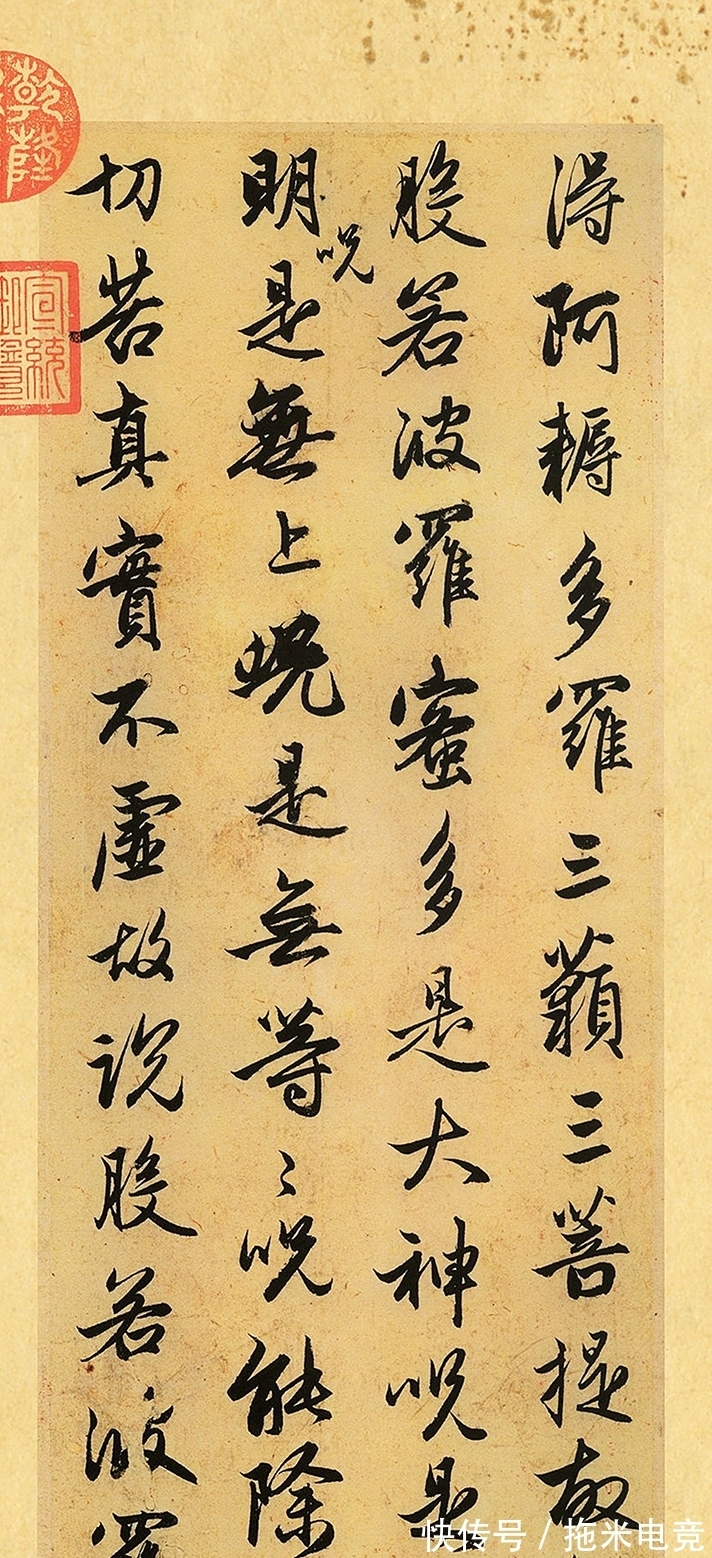 得阿耨多羅三藐三菩提故
般若波羅蜜多是大神呪是
明呪是無上呪是無等〻呪能除
切苦真實不虛故說般若波羅
乾隆
宣統
快传号 / 拖米电竞